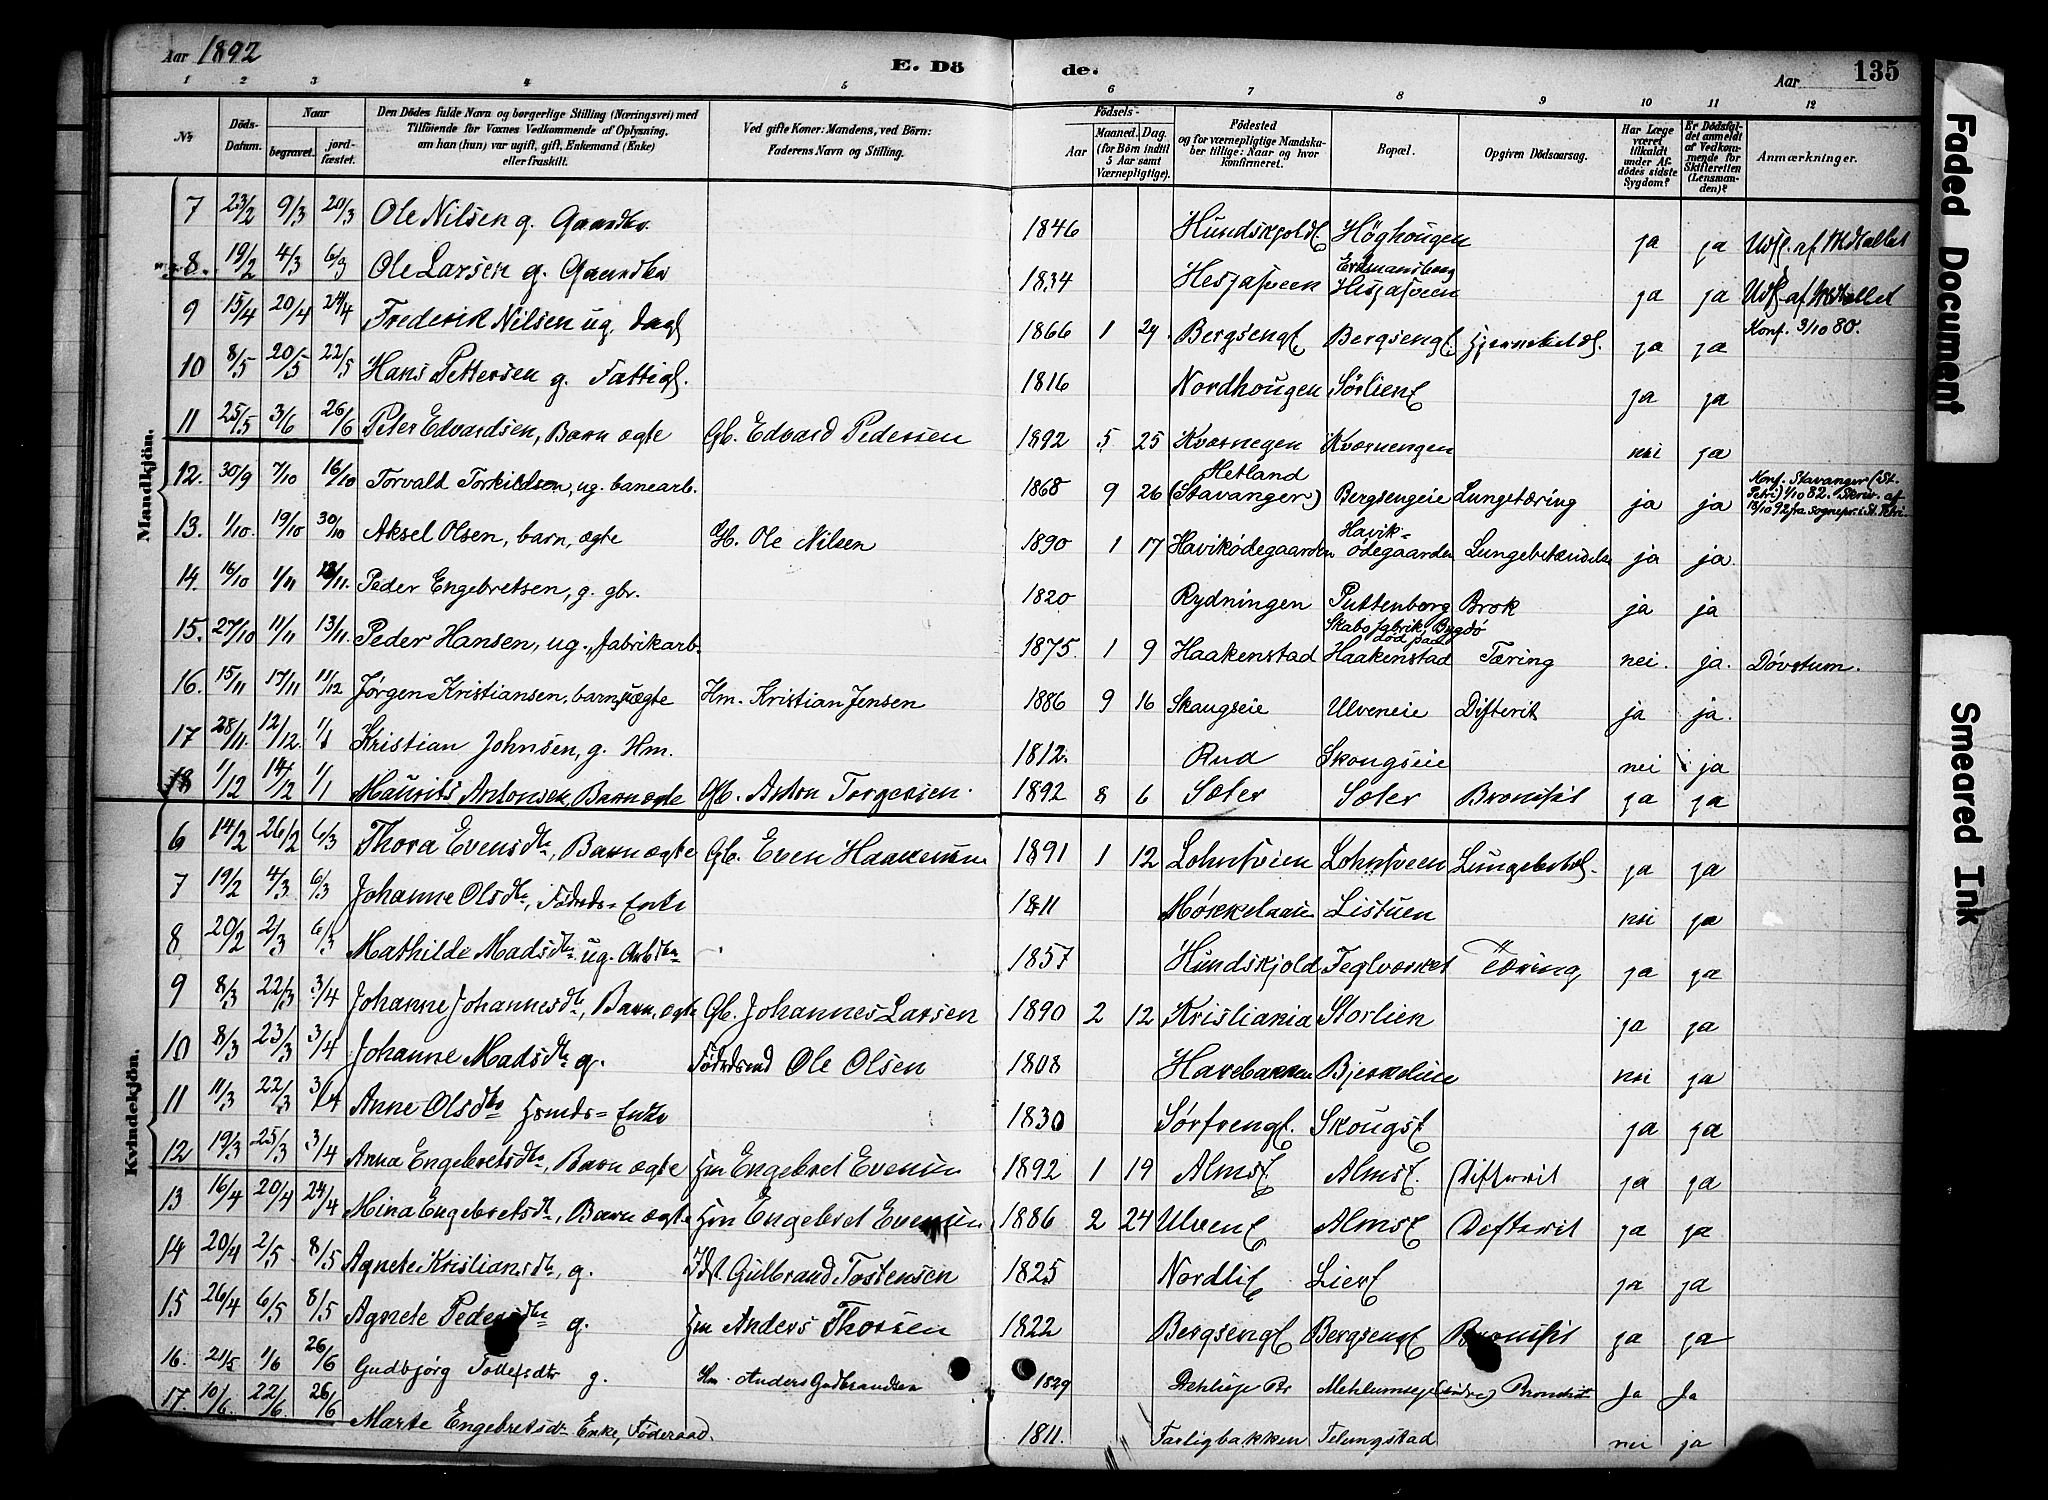 Aar 1892
E. Dö
de.
Aar
135
1 2 3 4 5 6 7 8 9 10 11 12
No
Döds-Datum.
Naar
begravet.
jord-fæstet.
Den Dödes fulde Navn og borgerlige Stilling (Næringsvei) med
Tilföiende for Voxnes Vedkommende af Oplysning,
om han (hun) var ugift, gift, Enkemand (Enke)
eller fraskilt.
Ved gifte Koner: Mandens, ved Börn:
Faderens Navn og Stilling.
Födsels-
Aar
Maaned. Dag.
(for Börn indtil
5 Aar samt
Værnepligtige).
Födested
og for værnepligtige Mandska-
ber tillige: Naar og hvor
konfirmeret.
Bopæl.
Opgiven Dödsaarsag.
Har Læge
været
tilkaldt
under Af-
dödes sidste
Sygdom?
Er Dödsfal-
det anmeldt
af Vedkom-
mende for
Skifteretten
(Lensman-
den)?
Anmærkninger.
Mandkjön.
7 23/2 9/3 20/3 Ole Nilsen g. Gaardbr. 1846 Hundskjold Höghougen ja ja
8. 19/2 4/3 6/3 Ole Larsen g. Gaardbr 1834 ja ja
9 15/4 20/4 24/4 Frederik Nilsen ug. Dagl 1866 1 29. Bergseng Bergseng ja ja Konf. 3/10 80.
10 8/5 20/5 22/5 Hans Pettersen g. Fattigl. 1816 Nordhougen Sörlien ja ja
11 25/5 3/6 26/6 Peter Edvardsen, Barn ægte Gb. Edvard Pedersen 1892 5 25 Kværnegen Kværnengen nei ja
12. 30/9 7/10 16/10 Torvald Torkildsen, ug. banearb. 1868 9 26 Hetland (Stavanger) Bergsengeie Lungetæring ja ja Konf. Stavanger (St. Petri) 1/10 82. Skriv. af 18/10 92 fra sognepr. i St. Petri
13. 1/10. 19/10 30/10 Aksel Olsen, barn, ægte Gb. Ole Nilsen 1890 1 17 Havikødegaarden Havik-ødegaarden Lungebetændelse ja ja.
14. 16/10 1/11 13/11. Peder Engebretsen, g. gbr. 1820 Rydningen Puttenborg Brok ja ja
15. 27/10 11/11 13/11. Peder Hansen, ug., fabrikarb. 1875. 1 9 Haakenstad Skabo fabrik, Bygdø død paa Haakenstad Tæring nei. ja. Døvstum.
16. 15/11 17/11 11/12 Jørgen Kristiansen, barn, uægte Hm. Kristian Jensen 1886 9 16 Skaugseie Ulveneie Difterit ja ja.
17 28/11. 12/12. 1/1 Kristian Johnsen, g. Hm. 1812. Rud Skougseie nei ja
18 1/12 14/12 1/1 Maurits Antonsen, Barn ægte Gb. Anton Torgersen. 1892 8 6 Sæter Sæter Bronkit ja ja
Kvindekjön.
6 14/2 26/2 6/3 Thora Evensdtr, Barn ægte Gb. Even Haakensen 1891 1 12 ja ja
7 19/2 4/3 6/3 Johanne Olsdtr, Föderds= Enke 1811 Listuen nei ja
8 20/2 2/3 6/3 Mathilde Madsdtr ug. 1857 Hundskjold Teglværket Tæring ja ja
9 8/3 22/3 3/4 Johanne Johannesdtr, Barn, ægte Gb. Johannes Larsen 1890 2 12 Kristiania Storlien ja ja
10 8/3 23/3 3/4 Johanne Madsdtr g. Ole Olsen 1808 Harebakken nei ja
11 11/3 22/3 3/4 Anne Olsdtr Hsmds= Enke 1830 ja ja
12 19/3 25/3 3/4 Anna Engebretsdtr, Barn ægte Hm Engebret Evensen 1892 1 19 Difterit ja ja
13 16/4 20/4 24/4 Mina Engebretsdtr, Barn ægte Hm Engebret Evensen 1886 2 24 Difterit ja ja
14 20/4 2/5 8/5 Agnete Kristiansdtr, g. Gulbrand Tostensen 1825 ja ja
15 26/4 6/5 8/5 Agnete Pedersdtr g. Hm Anders Thorsen 1822 Bergseng Bergseng Bronkit ja ja
16. 21/5 1/6 26/6 Gudbjørg Tollefsdtr g. Hm. Anders Gudbrandsen 1829 Ja Ja
17. 10/6. 22/6. 26/6 Marte Engebretsdtr Enke, Föderaad. 1811. Farligbakken nei ja
Faded Document
Smeared Ink